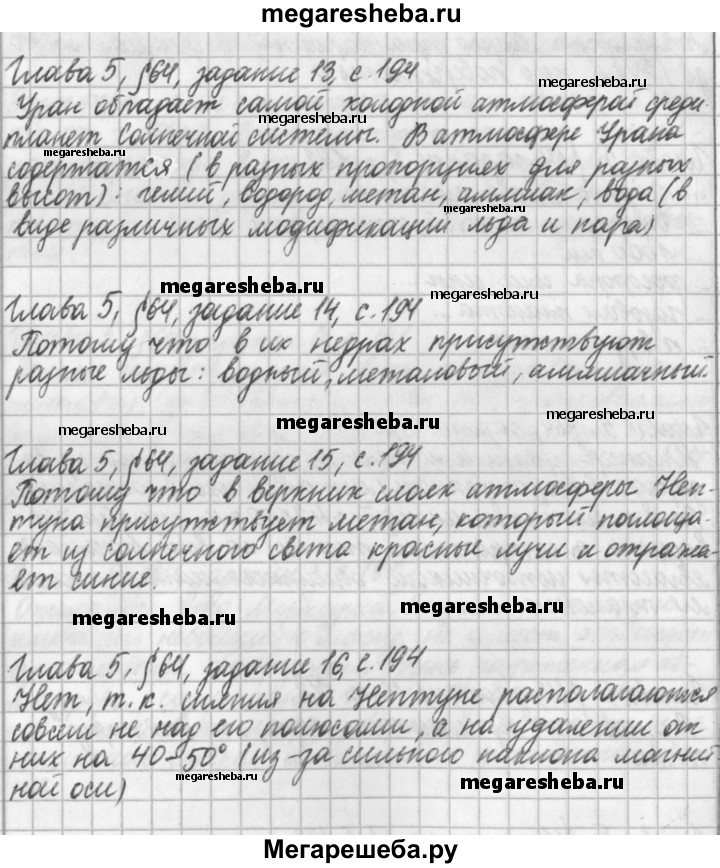 megaresheba.ru
Глава 5, §64, задание 13, с.194
megaresheba.ru
Уран обладает самой холодной атмосферой среди
megaresheba.ru
планет Солнечной системы. В атмосфере Урана
megaresheba.ru
megaresheba.ru
содержатся (в разных пропорциях для разных
высот): гелий, водород, метан, аммиак, вода (в
megaresheba.ru
виде различных модификации льда и пара)
megaresheba.ru
megaresheba.ru
Глава 5, §64, задание 14, с.194
Потому что в их недрах присутствуют
разные льды: водный, металовый, аммиачный.
megaresheba.ru
megaresheba.ru
megaresheba.ru
Глава 5, §64, задание 15, с.194
Потому что в верхник слоек атмосферы Неп-
туна присутствует метан, который поглоща-
ет из солнечного света красные лучи и отража-
ет синие.
megaresheba.ru
megaresheba.ru
Глава 5, §64, задание 16, с.194
Нет, т.к. сияния на Нептуне располагаются
совсем не над его полюсами, а на удалении от
них на 40-50° (из-за сильного наклона магнит-
megaresheba.ru
megaresheba.ru
ной оси)
Мегарешеба.ру